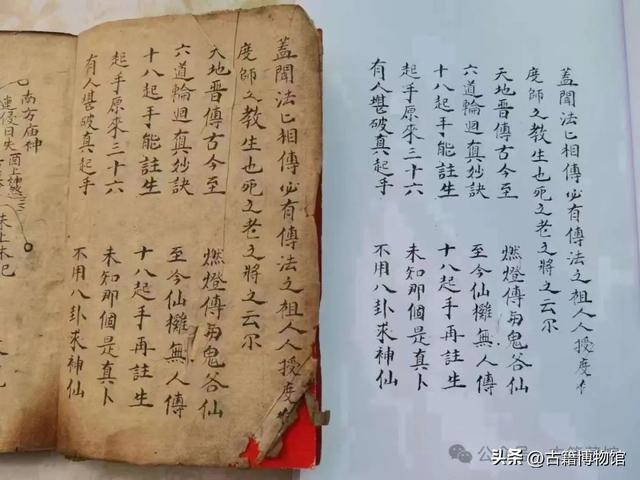 蓋聞法匕相傳必有傳法之祖人人授度
度師之教生也死之老之將之云尔
天地晋傳古今至 燃燈傳与鬼谷仙
六道輪迴真妙訣 至今仙無人傳
十八起手能註生 十八起手再註生
起手原來三十六 未知那個是真卜
有人堪破真起手 不用八卦求神仙
蓋聞法匕相傳必有傳法之祖人人授度
度師之教生也死之老之將之云尔
天地晋傳古今至 燃燈傳与鬼谷仙
六道輪迴真妙訣 至今仙無人傳
十八起手能註生 十八起手再註生
起手原來三十六 未知那個是真卜
有人堪破真起手 不用八卦求神仙
南方庙神
連侵日失
公众号
头条 @古籍博物馆